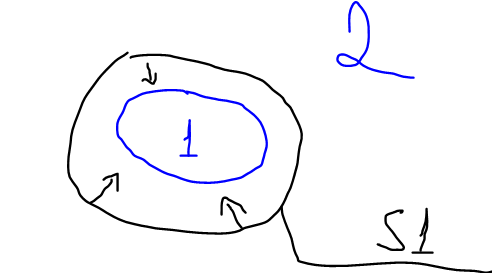 2
1
S1